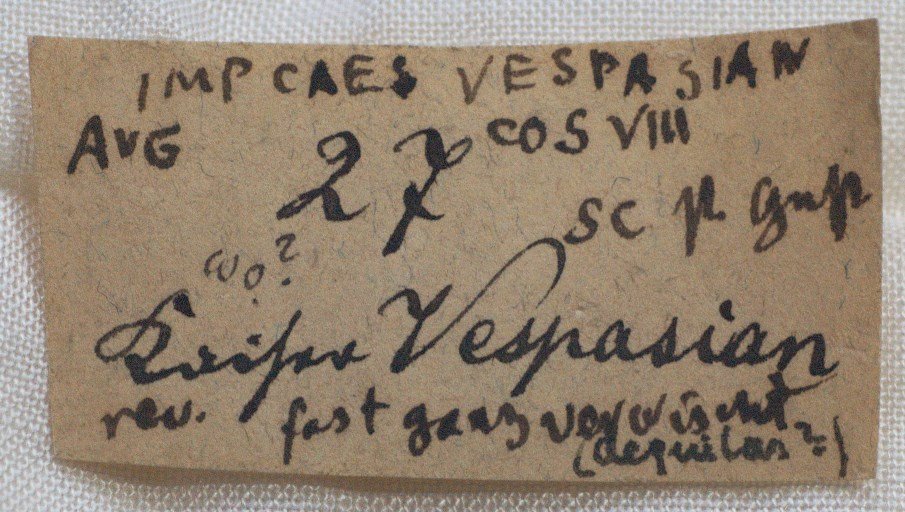 IMP CAES VESPASIAN
AVG 27 COS VIII
SC
wo?
Kaiser Vespasian
rev. fast ganz verwischt
(Aequitas?)